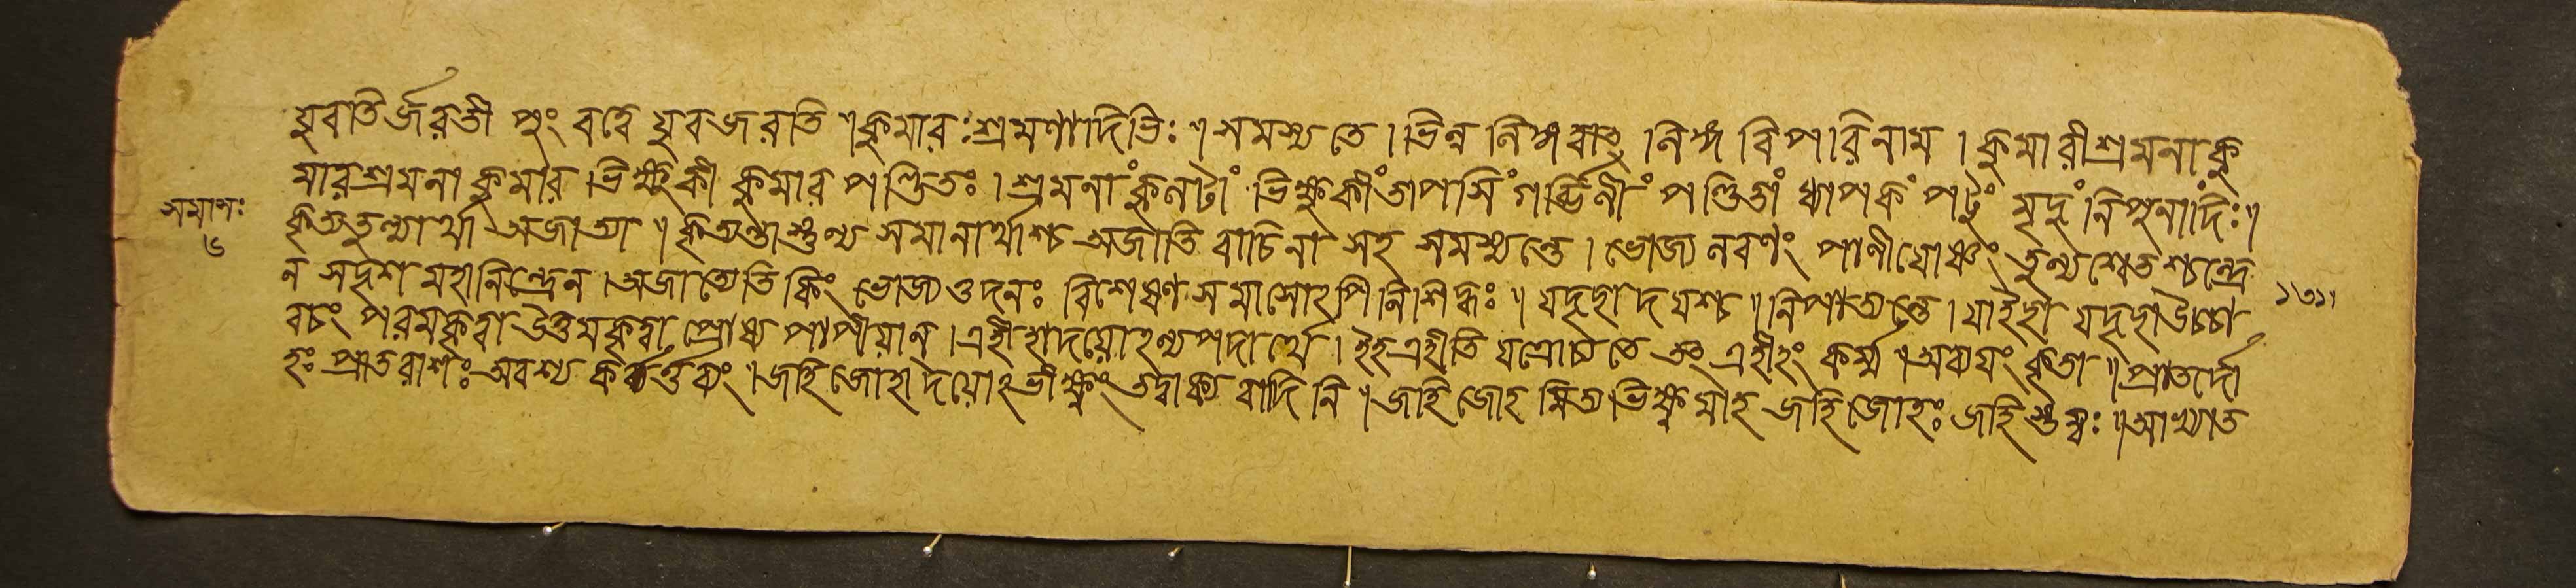 যুবতির্জরতী পুংবত্বে যুবজরতি ॥ কুমারঃ শ্রমণাদিভিঃ ॥ সমস্যতে । ভিন্ন নিঙ্গ নিঙ্গ বিপরিনাম । কুমারী শ্রমনা কু
মারশ্রমনা কুমার ভিক্ষুকী কুমার পণ্ডিতঃ । শ্রমনাং কুনটাং ভিক্ষুকীং তাপসিং গর্ব্ভিণীং পণ্ডিতাং ধ্যাপকং পটুং মৃদুং নিপুনাদিঃ ॥
সমাসঃ
৬
কৃত্যতুন্যার্থা অজাত্যা ॥ কৃত্যন্তাস্তুন্য সমানার্থাশ্চ অজাতি বাচিনা সহ সমস্যন্তে । ভোজ্য নবণং পাণীয়োষ্ণং তুন্যশ্বেতশ্চন্দ্রে
ন সদৃশ মহানিন্দ্রেন । অজাত্যেতি কিং ভোজ্য ওদনঃ বিশেষণ সমাসোঽপি নিশিদ্ধঃ ॥ যদৃছাদযশ্চ ॥ নিপাত্যন্তে । যাইছা যদৃছা উচ্চা
১৩১৷
বচং পরমকৃত্বা উত্তমকৃত্বা প্রোষ্য পাপীয়ান্ । এহীহাদয়োঽন্যপদার্থে । ইহ এহীতি যত্রোচ্যতে তৎ এহীহং কর্ম্ম ॥ অব্যয়ং কৃতা ॥ প্রাতর্দো
হঃ প্রাতরাশঃ অবশ্য কর্ত্তব্যং । জহি জোহাদয়োঽভীক্ষ্ণং তদ্বাক্য বাদিনি ॥ জহি জোহ মিত্য ভিক্ষ্ণমাহ জহি জোহঃ জহি স্তম্বঃ ॥ আখ্যাত